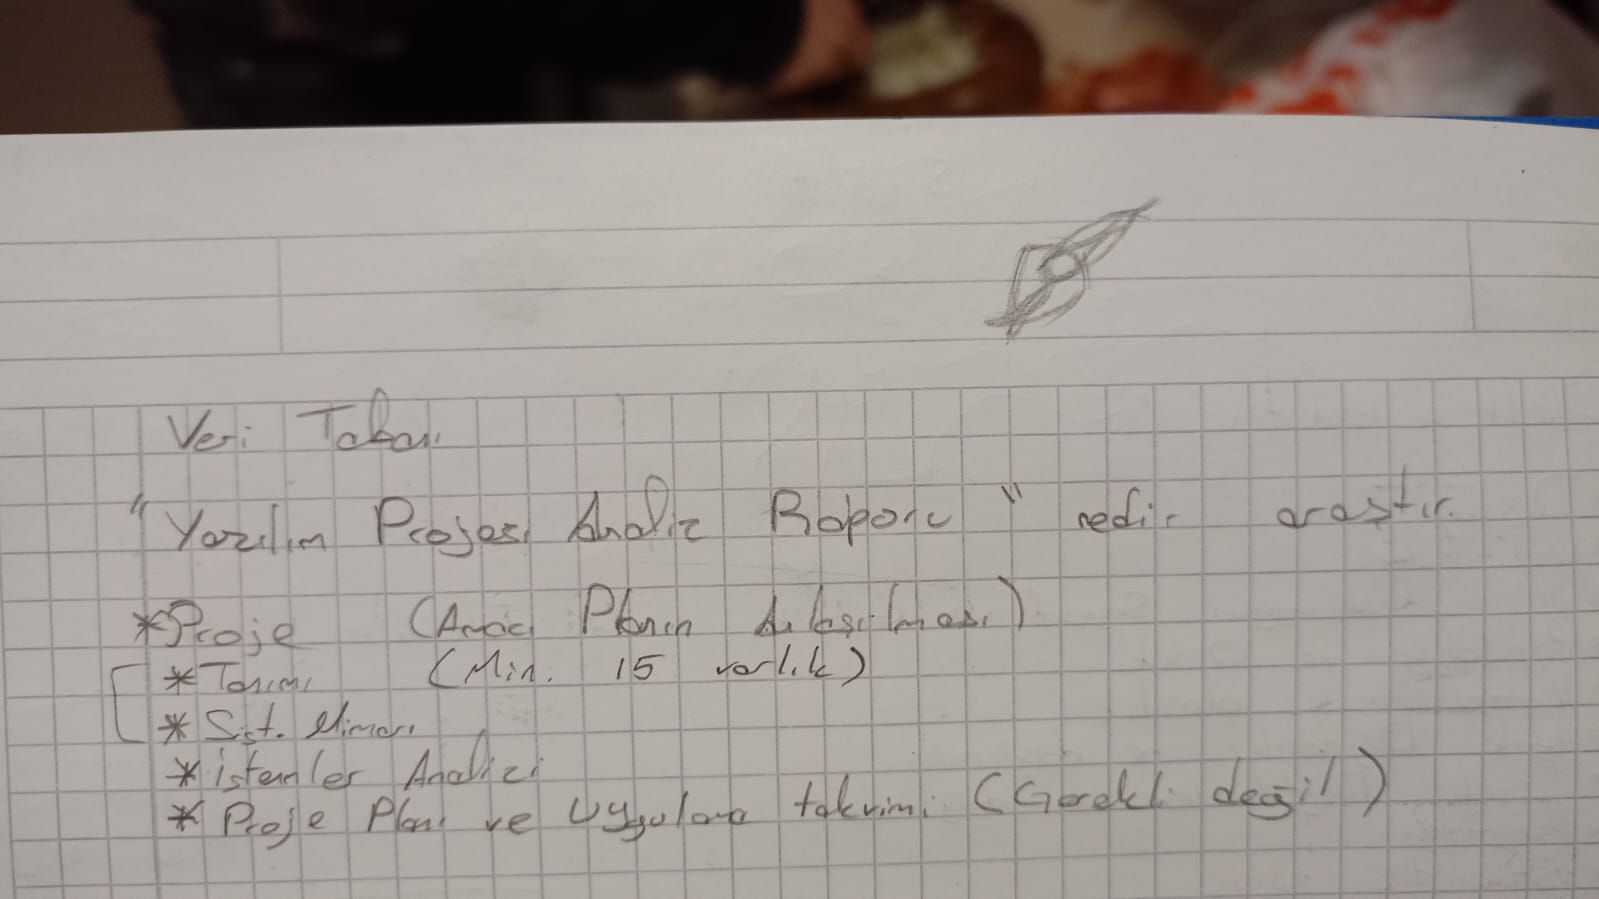 Veri Tabanı
"Yazılım Projesi Analiz Raporu" nedir araştır.
*Proje (Amacı Planın Anlaşılması)
* Tanımı (Min. 15 varlık)
* Sist. Mimari
* istemler Analizi
* Proje Planı ve Uygulama takvimi (Gerekli değil)